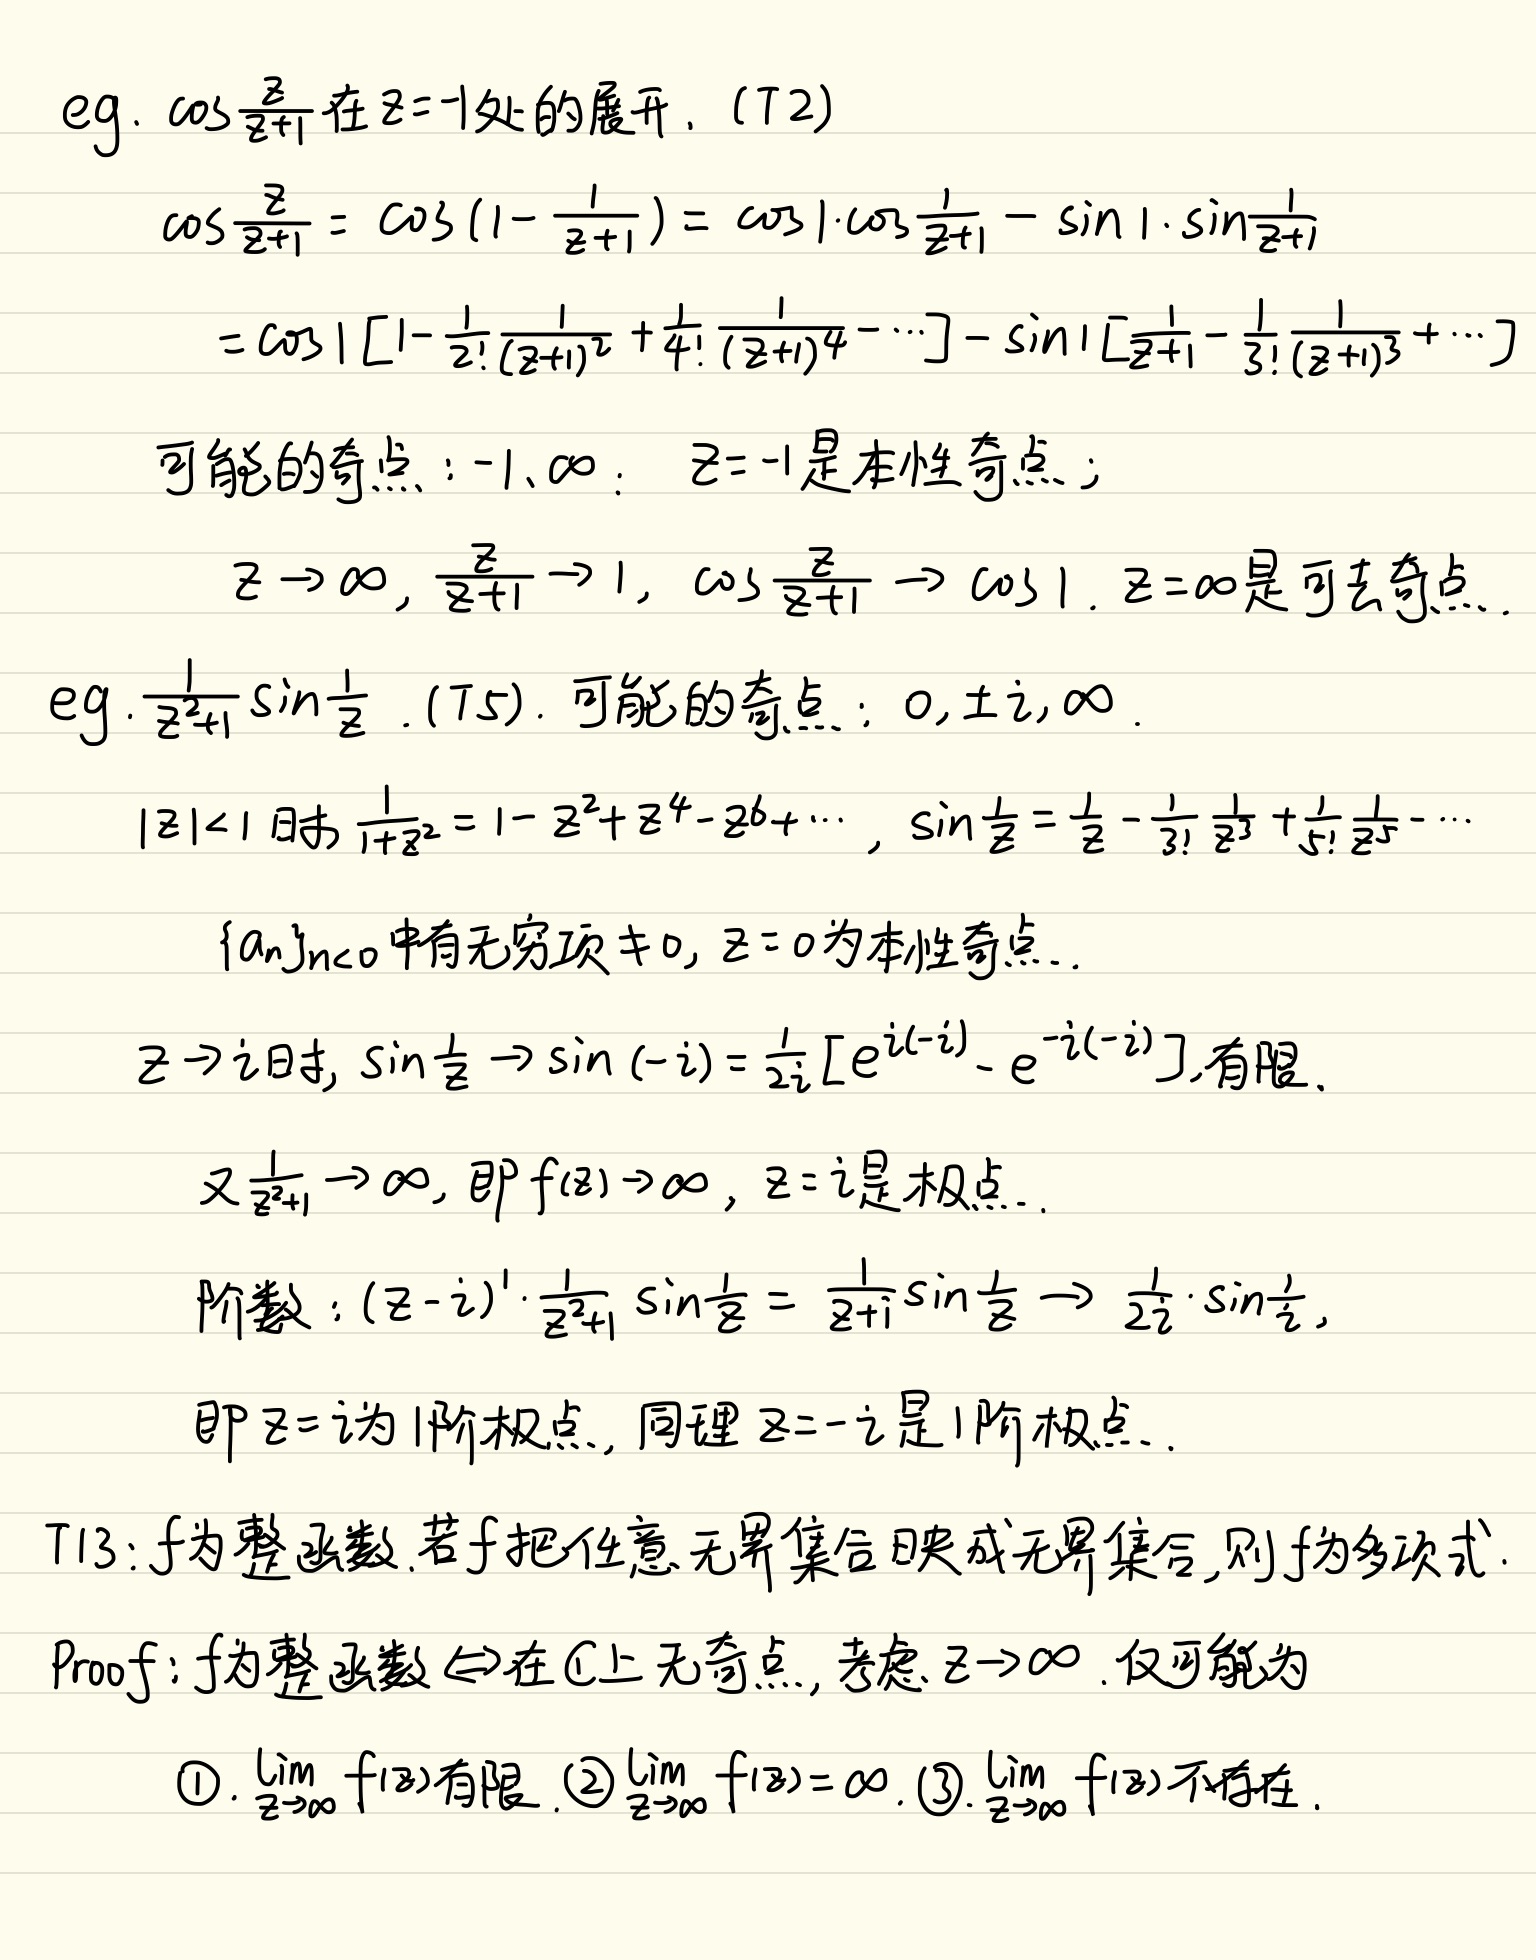 eg. cos z/(z+1) 在 z=-1处的展开. (T2)
cos z/(z+1) = cos(1 - 1/(z+1)) = cos1·cos 1/(z+1) - sin1·sin 1/(z+1)
= cos1 [1 - 1/2! 1/(z+1)² + 1/4! 1/(z+1)⁴ - …] - sin1 [1/(z+1) - 1/3! 1/(z+1)³ + …]
可能的奇点: -1、∞: z=-1是本性奇点;
z→∞, z/(z+1) → 1, cos z/(z+1) → cos1. z=∞是可去奇点.
eg. 1/(z²+1) sin 1/z. (T5). 可能的奇点: 0, ±i, ∞.
|z|<1时 1/(1+z²) = 1 - z² + z⁴ - z⁶ + …, sin 1/z = 1/z - 1/3! 1/z³ + 1/5! 1/z⁵ - …
{aₙ}ₙ<₀ 中有无穷项≠0, z=0为本性奇点.
z→i时, sin 1/z → sin(-i) = 1/2i [e^{i(-i)} - e^{-i(-i)}], 有限.
又 1/(z²+1) → ∞, 即 f(z)→∞, z=i是极点.
阶数: (z-i)¹· 1/(z²+1) sin 1/z = 1/(z+i) sin 1/z → 1/2i · sin 1/i,
即 z=i为1阶极点, 同理 z=-i是1阶极点.
T13: f为整函数. 若f把任意无界集合映成无界集合, 则f为多项式.
Proof: f为整函数⇔在ℂ上无奇点, 考虑 z→∞. 仅可能为
①. lim_{z→∞} f(z)有限. ② lim_{z→∞} f(z)=∞. ③. lim_{z→∞} f(z)不存在.